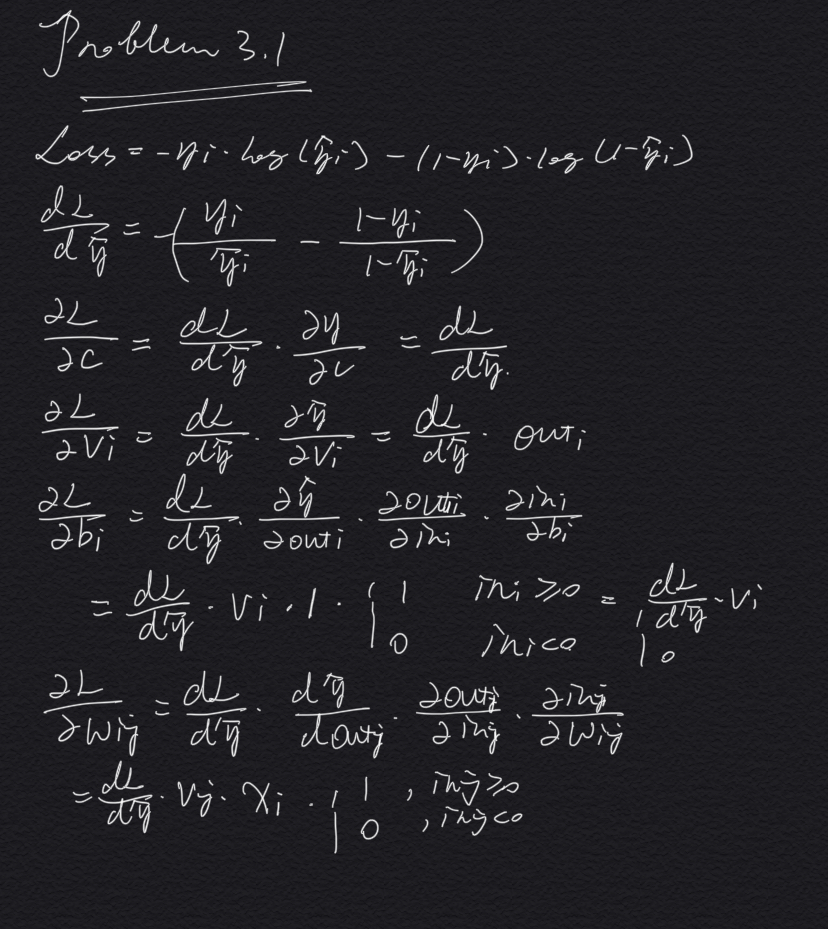 Problem 3.1
Loss = -yi · log(ŷi) - (1-yi) · log(1-ŷi)
dL/dŷ = -(yi/ŷi - (1-yi)/(1-ŷi))
∂L/∂c = dL/dŷ · ∂y/∂c = dL/dŷ.
∂L/∂Vi = dL/dŷ · ∂ŷ/∂Vi = dL/dŷ · outi
∂L/∂bi = dL/dŷ · ∂ŷ/∂outi · ∂outi/∂ini · ∂ini/∂bi
= dL/dŷ · Vi · 1 · { 1 ini ≥0 0 ini <0 = { dL/dŷ · Vi 0
∂L/∂Wij = dL/dŷ · dŷ/doutj · ∂outj/∂inj · ∂inj/∂Wij
= dL/dŷ · Vj · Xi · { 1 , inj ≥0 0 , inj <0